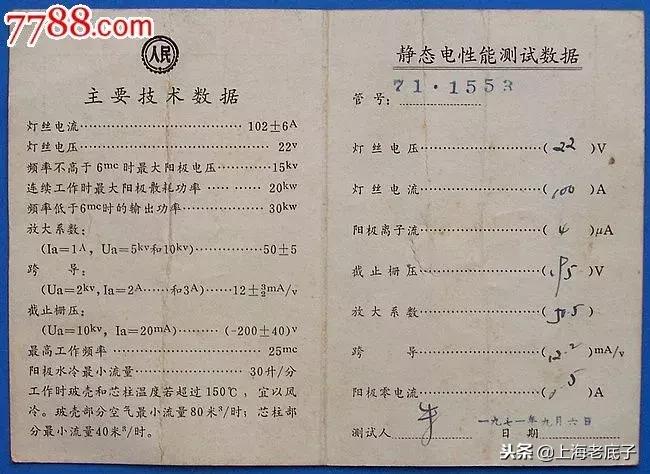 7788.com
人民
主要技术数据
灯丝电流……102±6A
灯丝电压……22v
频率不高于6mc时最大阳极电压……15kv
连续工作时最大阳极散耗功率……20kw
频率低于6mc时的输出功率……30kw
放大系数：
(Ia=1A，Ua=5kv和10kv)……50±5
跨　导：
(Ua=2kv,Ia=2A……和3A)……12±3/2mA/v
截止栅压：
(Ua=10kv，Ia=20mA)……(-200±40)v
最高工作频率……25mc
阳极水冷最小流量……30升/分
工作时玻壳和芯柱温度若超过150℃，宜以风
冷。玻壳部分空气最小流量80米³/时；芯柱部
分最小流量40米³/时。
静态电性能测试数据
管号：71·1553
灯丝电压……(22)V
灯丝电流……(100)A
阳极离子流……(4)μA
截止栅压……(195)V
放大系数……(50.5)
跨　导……(12.2)mA/v
阳极零电流……( 5)A
测试人
一九七一年九月六日
日期
头条@上海老底子